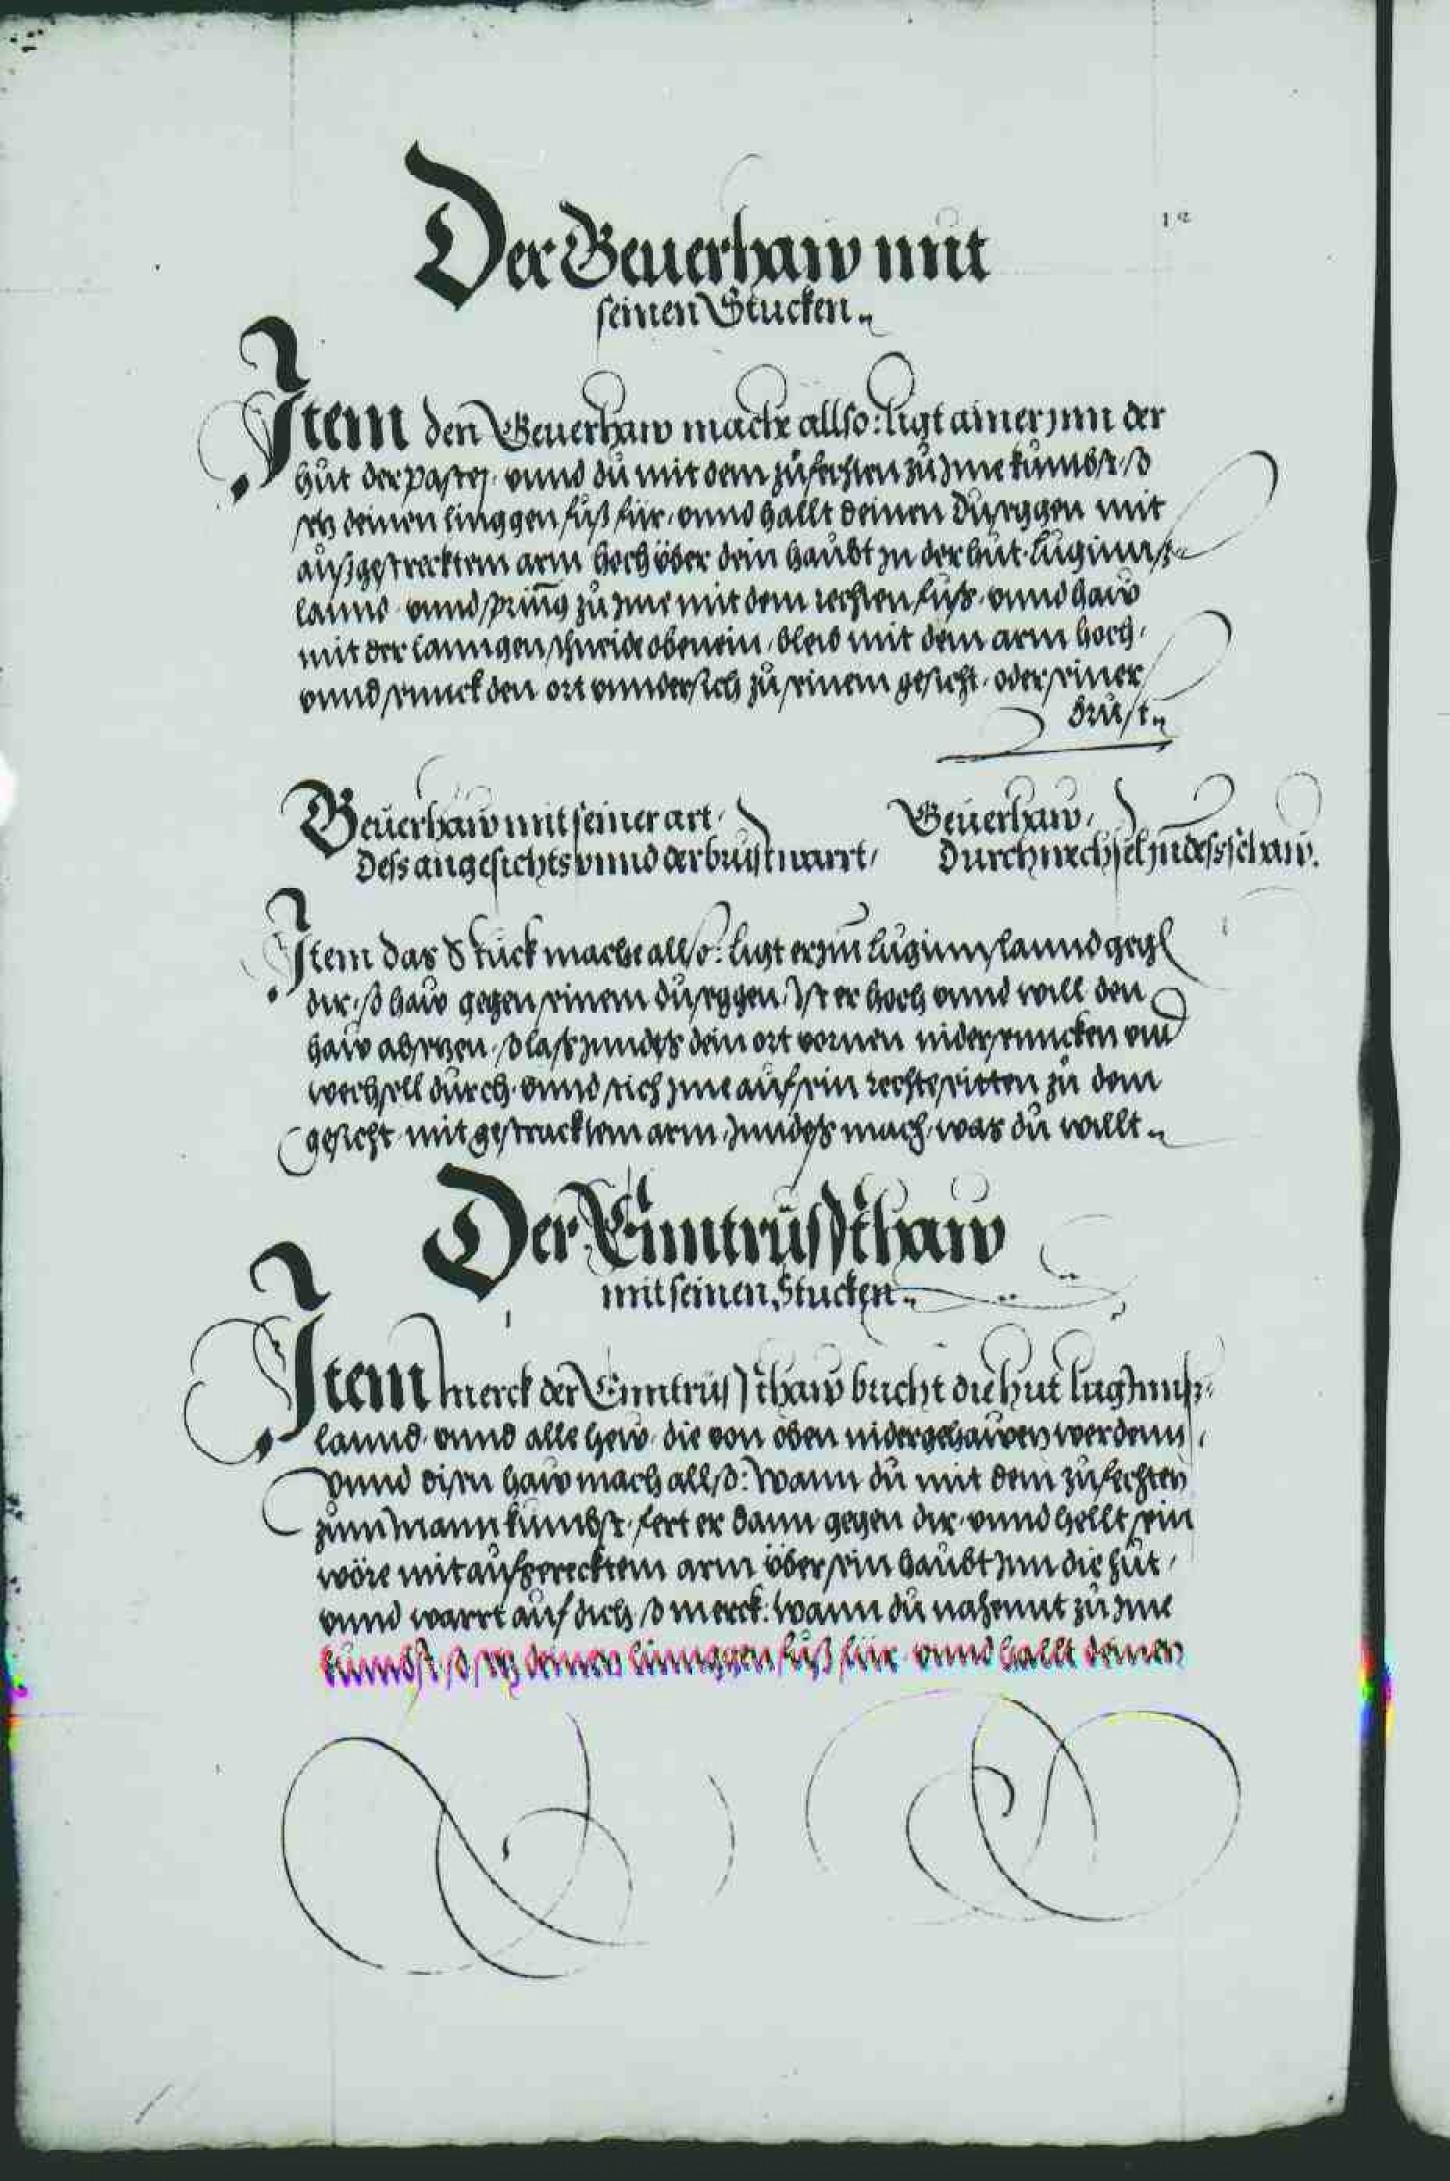 12
Der Geuerhaw mit
seinen Stucken
Item den Geuerhaw mache allso: ligt ainer jnn der
hut der pastej. vnnd du mit dem zufechten zu jme kumbst, so
setz deinen linggen fuß für, vnnd hallt deinen Duseggen mit
außgestrecktem arm hoch über dein haubt jn der hut. Luginnß
lannd. vnnd spring zu jme mit dem rechten fuß, vnnd haw
mit der lanngen schneide obenein, bleib mit dem arm hoch,
vnnd sennck den ort vnndersich zu seinem gesicht, oder seiner
brust
Geuerhaw mit seiner art,
Dess angesichts vnnd der brust warrt,
Geuerhaw,
Durchwechsel jndess schaw.
Item das Stuck mache allso: ligt er jnn Luginnslannd gegen
dir, so haw gegen seinem duseggen, Ist er hoch vnnd will den
haw absetzen, so laß jnndeß dein ort vornen nidersenncken vnd
wechsell durch, vnnd stich jme auf sein rechte seitten zu dem
gesicht mit gestracktem arm, Jnndeß mach, was du willt
Der Enntrüsthaw
mit seinen Stucken
Item merck der Enntrüsthaw bricht die hut lug Innß
lannd, vnnd alle hew, die von oben nider gehawen werdenn,
vnnd disen haw mach allso: Wann du mit dem zufechten
zum mann kumbst, fert er dann gegen dir, vnnd hellt sein
wöre mit aufgerecktem arm über sein haubt jnn die hut,
vnnd warrt auf dich, so merck: Wann du nahennt zu jme
kumbst, so setz deinen linnggen fuß für, vnnd hallt deinen